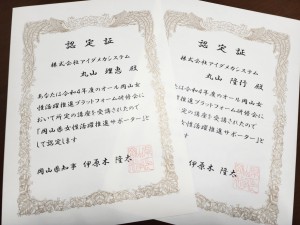 認定証
株式会社アイダメカシステム
丸山 理恵 殿
あなたは令和4年度のオール岡山女
性活躍推進プラットフォーム研修会に
おいて所定の講座を受講されたので
『岡山県女性活躍推進サポーター』と
して認定します
岡山県知事 伊原木 隆太
認定証
株式会社アイダメカシステム
丸山 隆行 殿
は令和4年度のオール岡山女
進プラットフォーム研修会に
定の講座を受講されたので
女性活躍推進サポーター』と
します
知事 伊原木 隆太